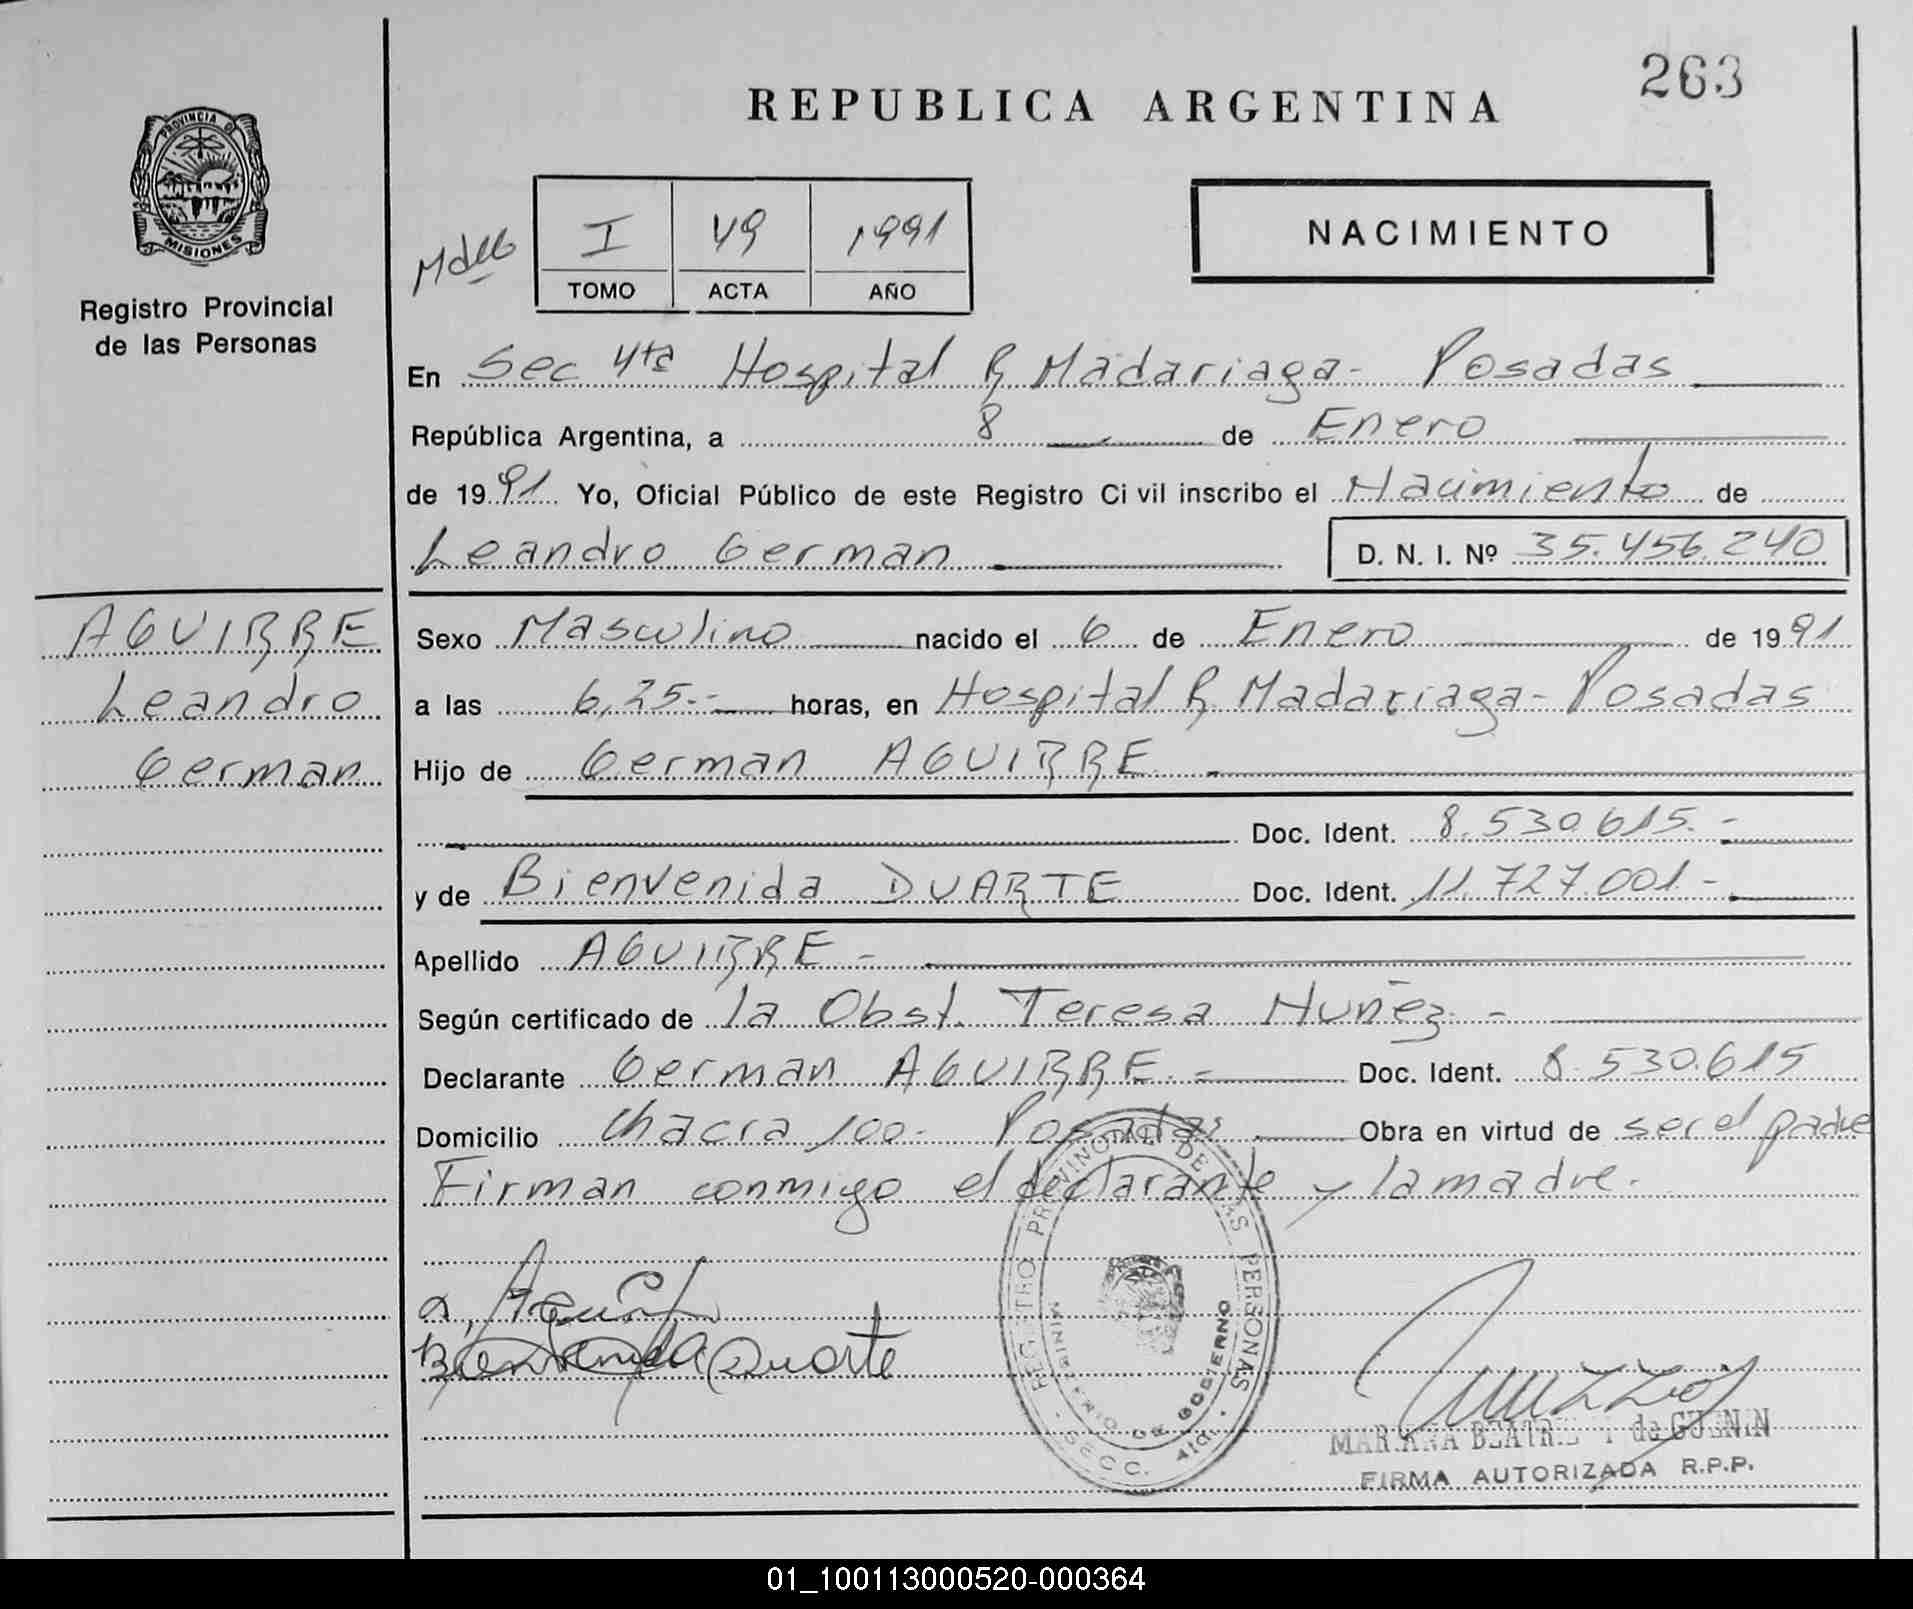 263
REPUBLICA ARGENTINA
PROVINCIA DE
MISIONES
Registro Provincial
de las Personas
I 49 1991
TOMO ACTA AÑO
NACIMIENTO
En Sec 4ta Hospital R Madariaga - Posadas
República Argentina, a 8 de Enero
de 1991 Yo, Oficial Público de este Registro Civil inscribo el Nacimiento de
Leandro German D. N. I. Nº 35.456.240
AGUIRRE
Leandro
German
Sexo Masculino nacido el 6 de Enero de 1991
a las 6,25.- horas, en Hospital R Madariaga - Posadas
Hijo de German AGUIRRE
Doc. Ident. 8.530.615.-
y de Bienvenida DUARTE Doc. Ident. 11.727.001.-
Apellido AGUIRRE -
Según certificado de la Obst. Teresa Nuñez -
Declarante German AGUIRRE.- Doc. Ident. 8.530.615
Domicilio Chacra 100- Posadas Obra en virtud de ser el padre
Firman conmigo el declarante y la madre.
Bienvenida Duarte
REGISTRO PROVINCIAL DE LAS PERSONAS
MINISTERIO DE GOBIERNO
SECC. 4ta.
MARIANA BEATRIZ de GUENIN
FIRMA AUTORIZADA R.P.P.
01_100113000520-000364